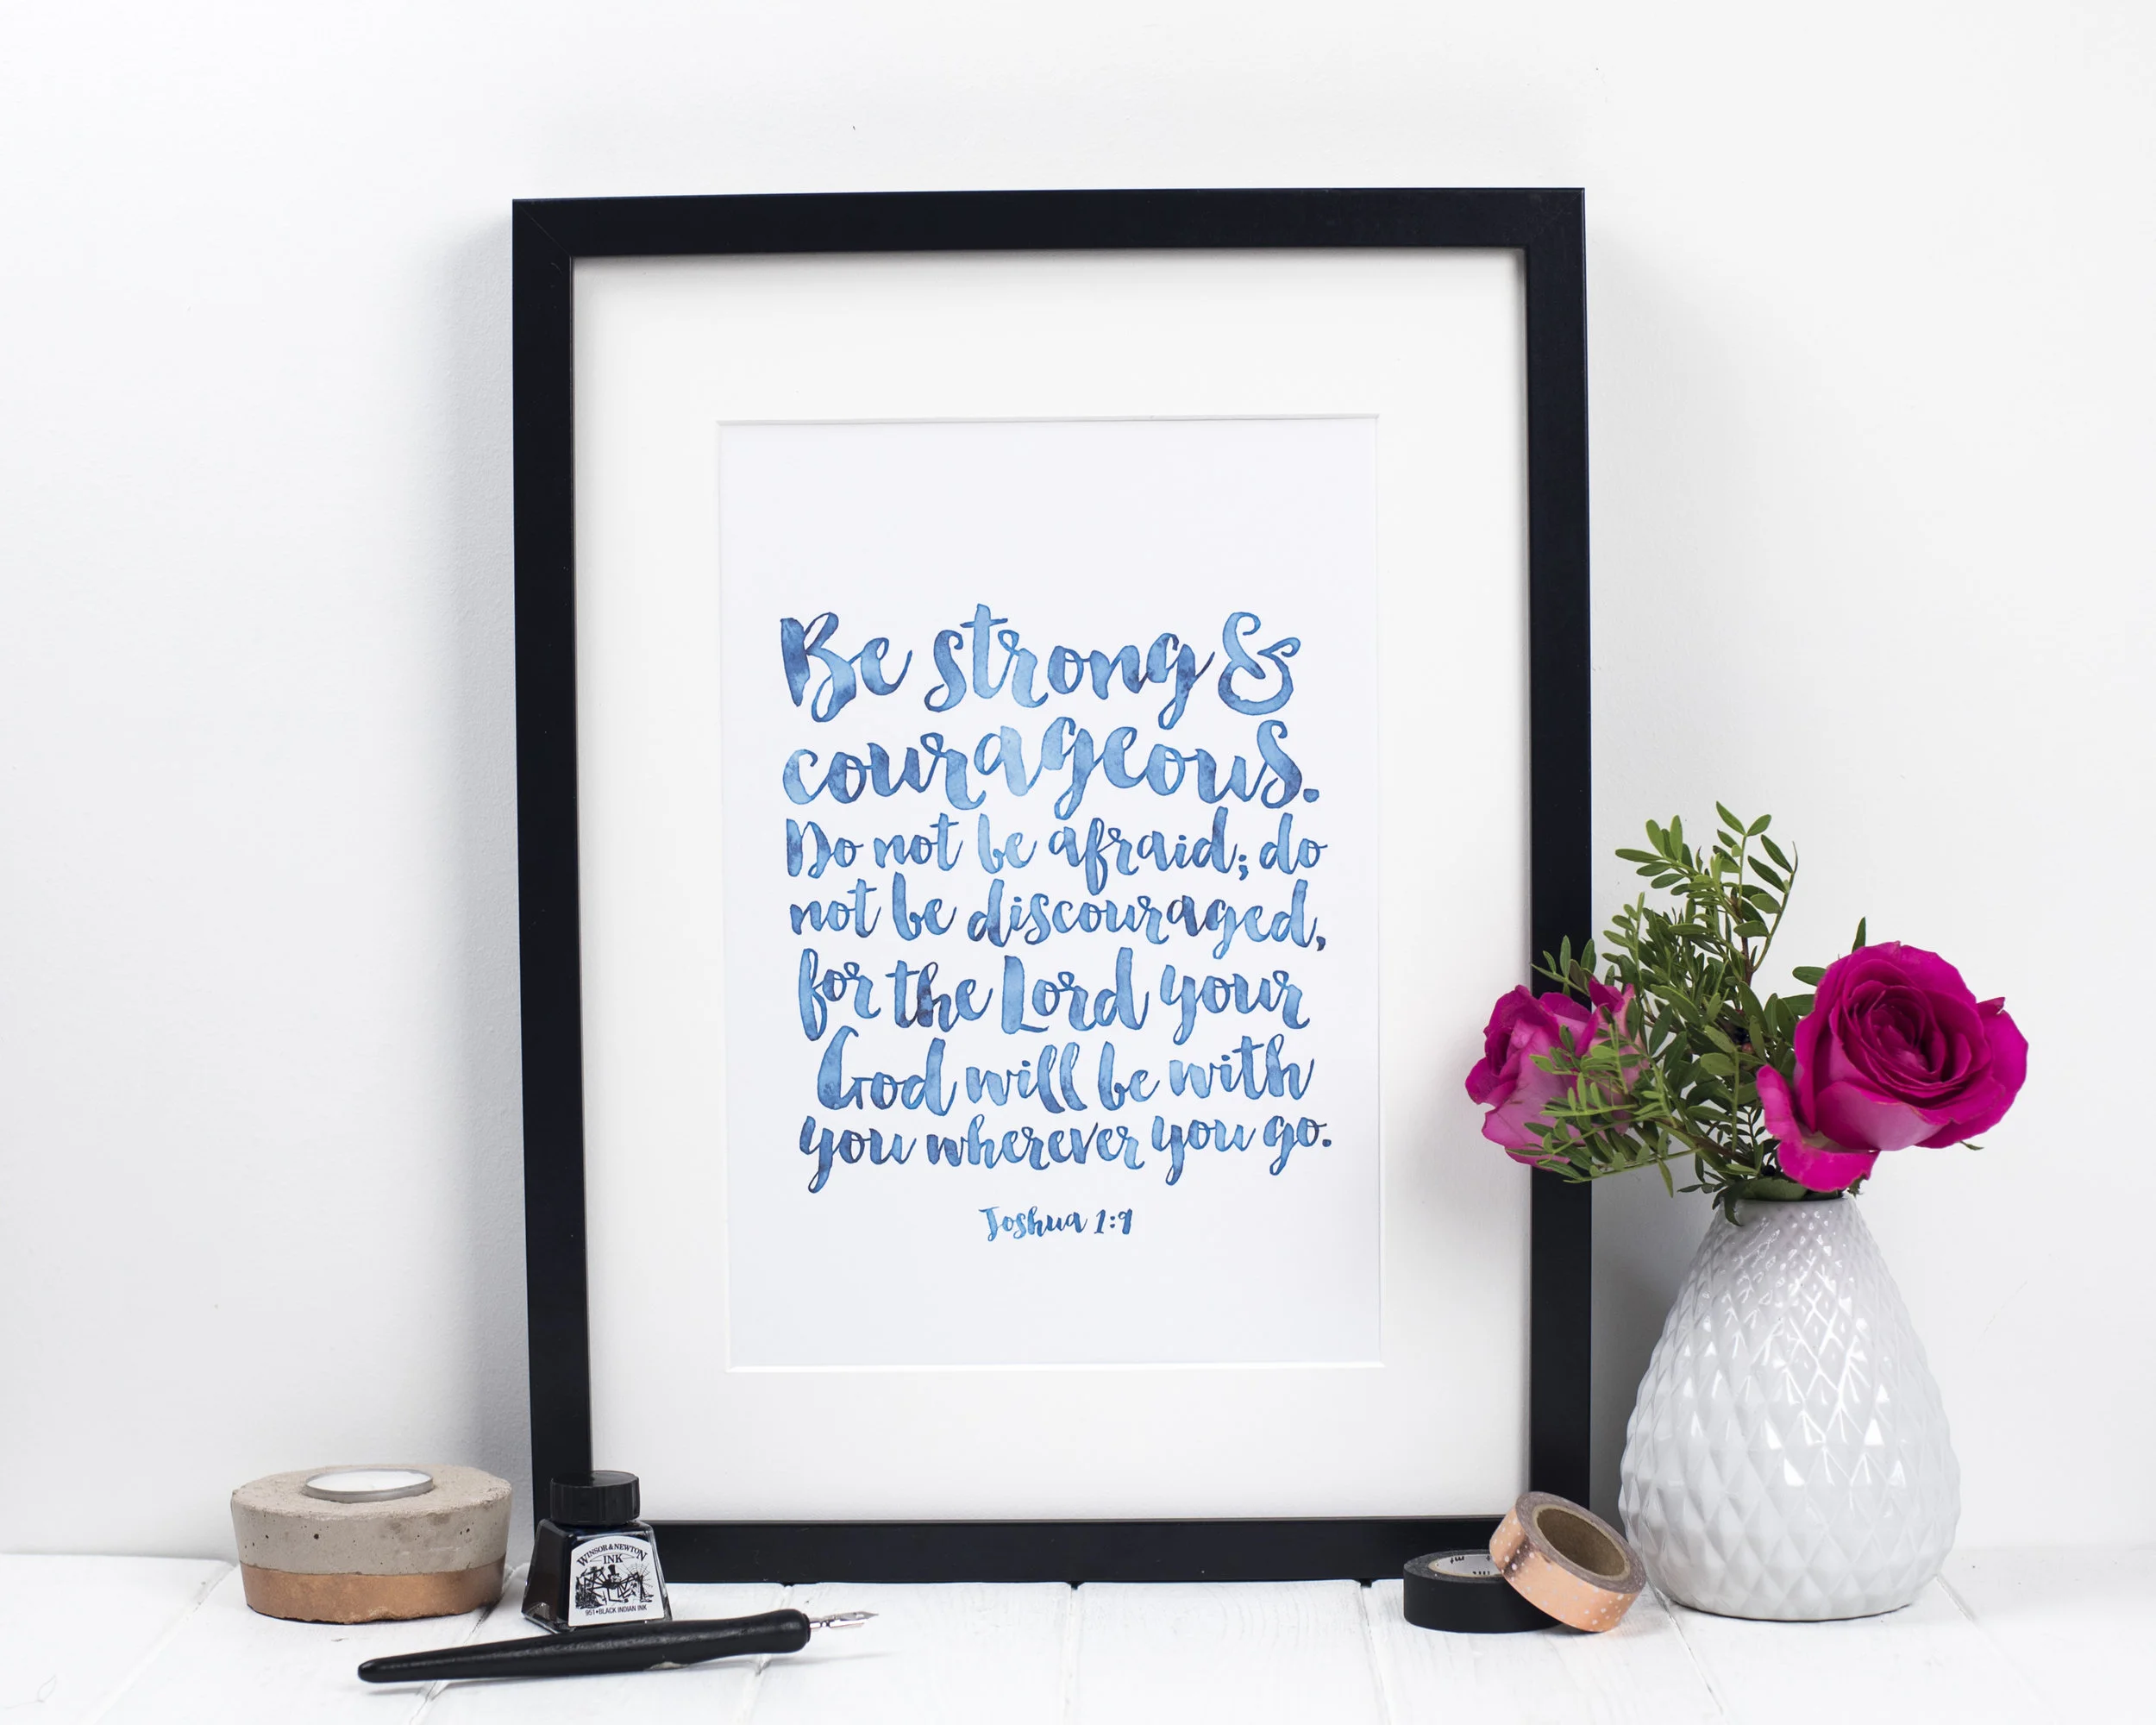 Be strong &
courageous.
Do not be afraid; do
not be discouraged,
for the Lord your
God will be with
you wherever you go.
Joshua 1:9
WINSOR & NEWTON
INK
951•BLACK INDIAN INK
mt